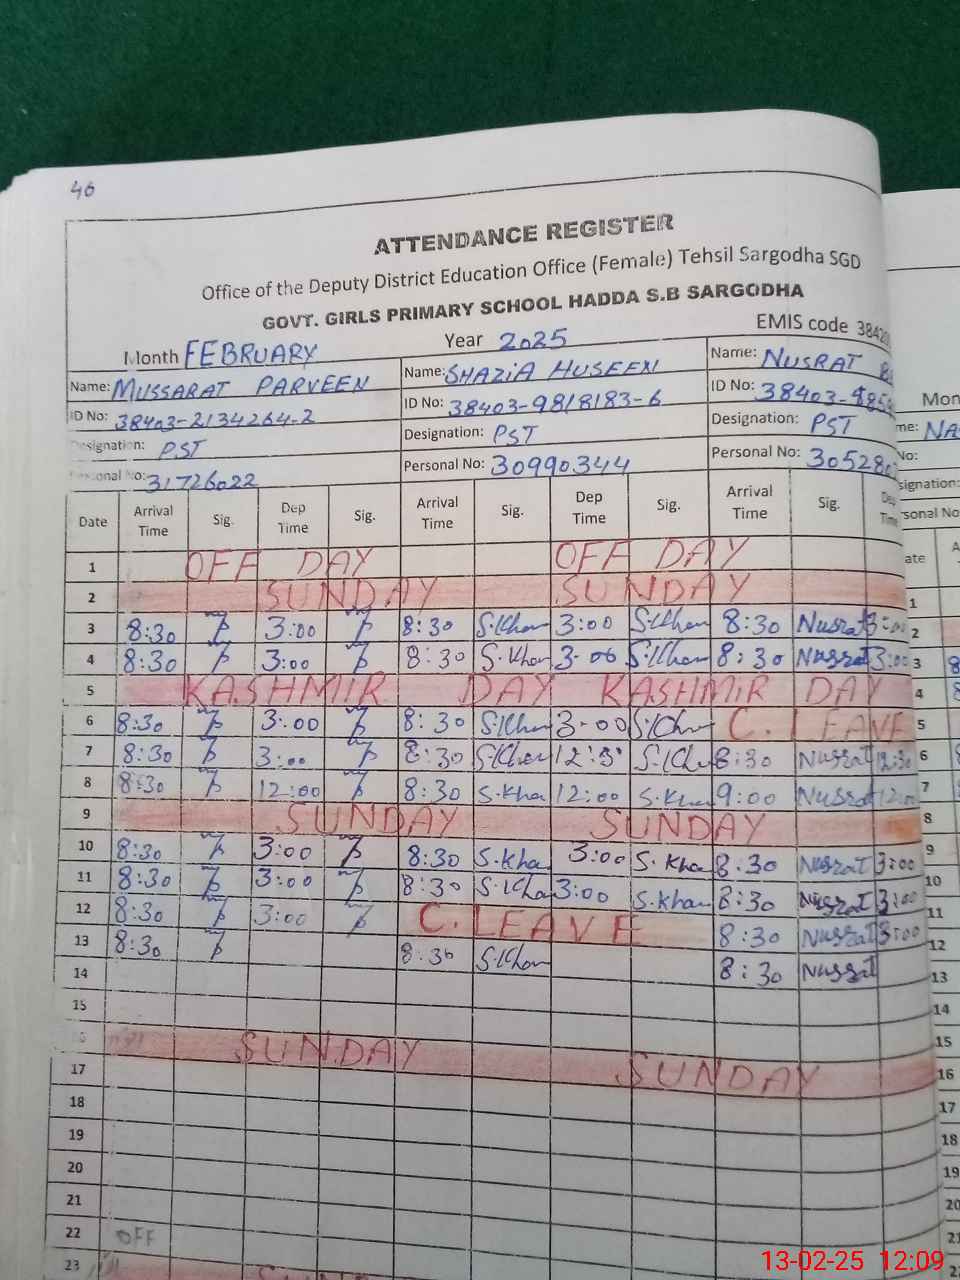 46
ATTENDANCE REGISTER
Office of the Deputy District Education Office (Female) Tehsil Sargodha SGD
GOVT. GIRLS PRIMARY SCHOOL HADDA S.B SARGODHA
Month FEBRUARY Year 2025 EMIS code 38420
Name: MUSSARAT PARVEEN Name: SHAZIA HUSEEN Name: NUSRAT
ID No: 38403-2134264-2 ID No: 38403-9818183-6 ID No: 38403-
Designation: PST Designation: PST Designation: PST
Personal No: 31726022 Personal No: 30990344 Personal No: 30528
Date Arrival Time Sig. Dep Time Sig. Arrival Time Sig. Dep Time Sig. Arrival Time Sig. Dep Time
1 OFF DAY OFF DAY
2 SUNDAY SUNDAY
3 8:30 3:00 8:30 S.Khan 3:00 S.Khan 8:30 Nusrat 3:00
4 8:30 3:00 8:30 S.Khan 3-00 S.Khan 8:30 Nusrat 3:00
5 KASHMIR DAY KASHMIR DAY
6 8:30 3:00 8:30 S.Khan 3-00 S.Khan C.LEAVE
7 8:30 3:00 8:30 S.Khan 12:30 S.Kha 8:30 Nusrat 12:30
8 8:30 12:00 8:30 S.Kha 12:00 S.Khan 9:00 Nusrat 12:00
9 SUNDAY SUNDAY
10 8:30 3:00 8:30 S.Kha 3:00 S.Kha 8:30 Nusrat 3:00
11 8:30 3:00 8:30 S.Khan 3:00 S.Khan 8:30 Nusrat 3:00
12 8:30 3:00 C.LEAVE 8:30 Nusrat 3:00
13 8:30 8:30 S.Khan 8:30 Nusrat
14
15
16 SUNDAY SUNDAY
17
18
19
20
21
22 OFF
23
Mon
me: NA
No:
signation:
rsonal No
ate
1
2
3
4
5
6
7
8
9
10
11
12
13
14
15
16
17
18
19
20
21
13-02-25 12:09